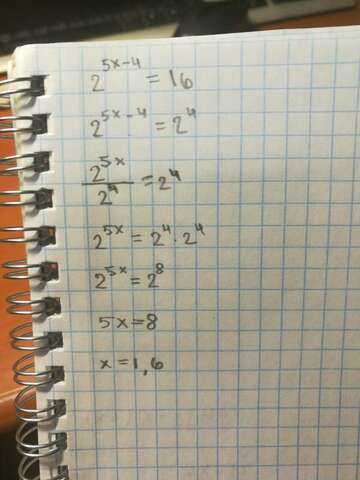 2^{5x-4} = 16
2^{5x-4} = 2^4
\frac{2^{5x}}{2^4} = 2^4
2^{5x} = 2^4 · 2^4
2^{5x} = 2^8
5x = 8
x = 1,6